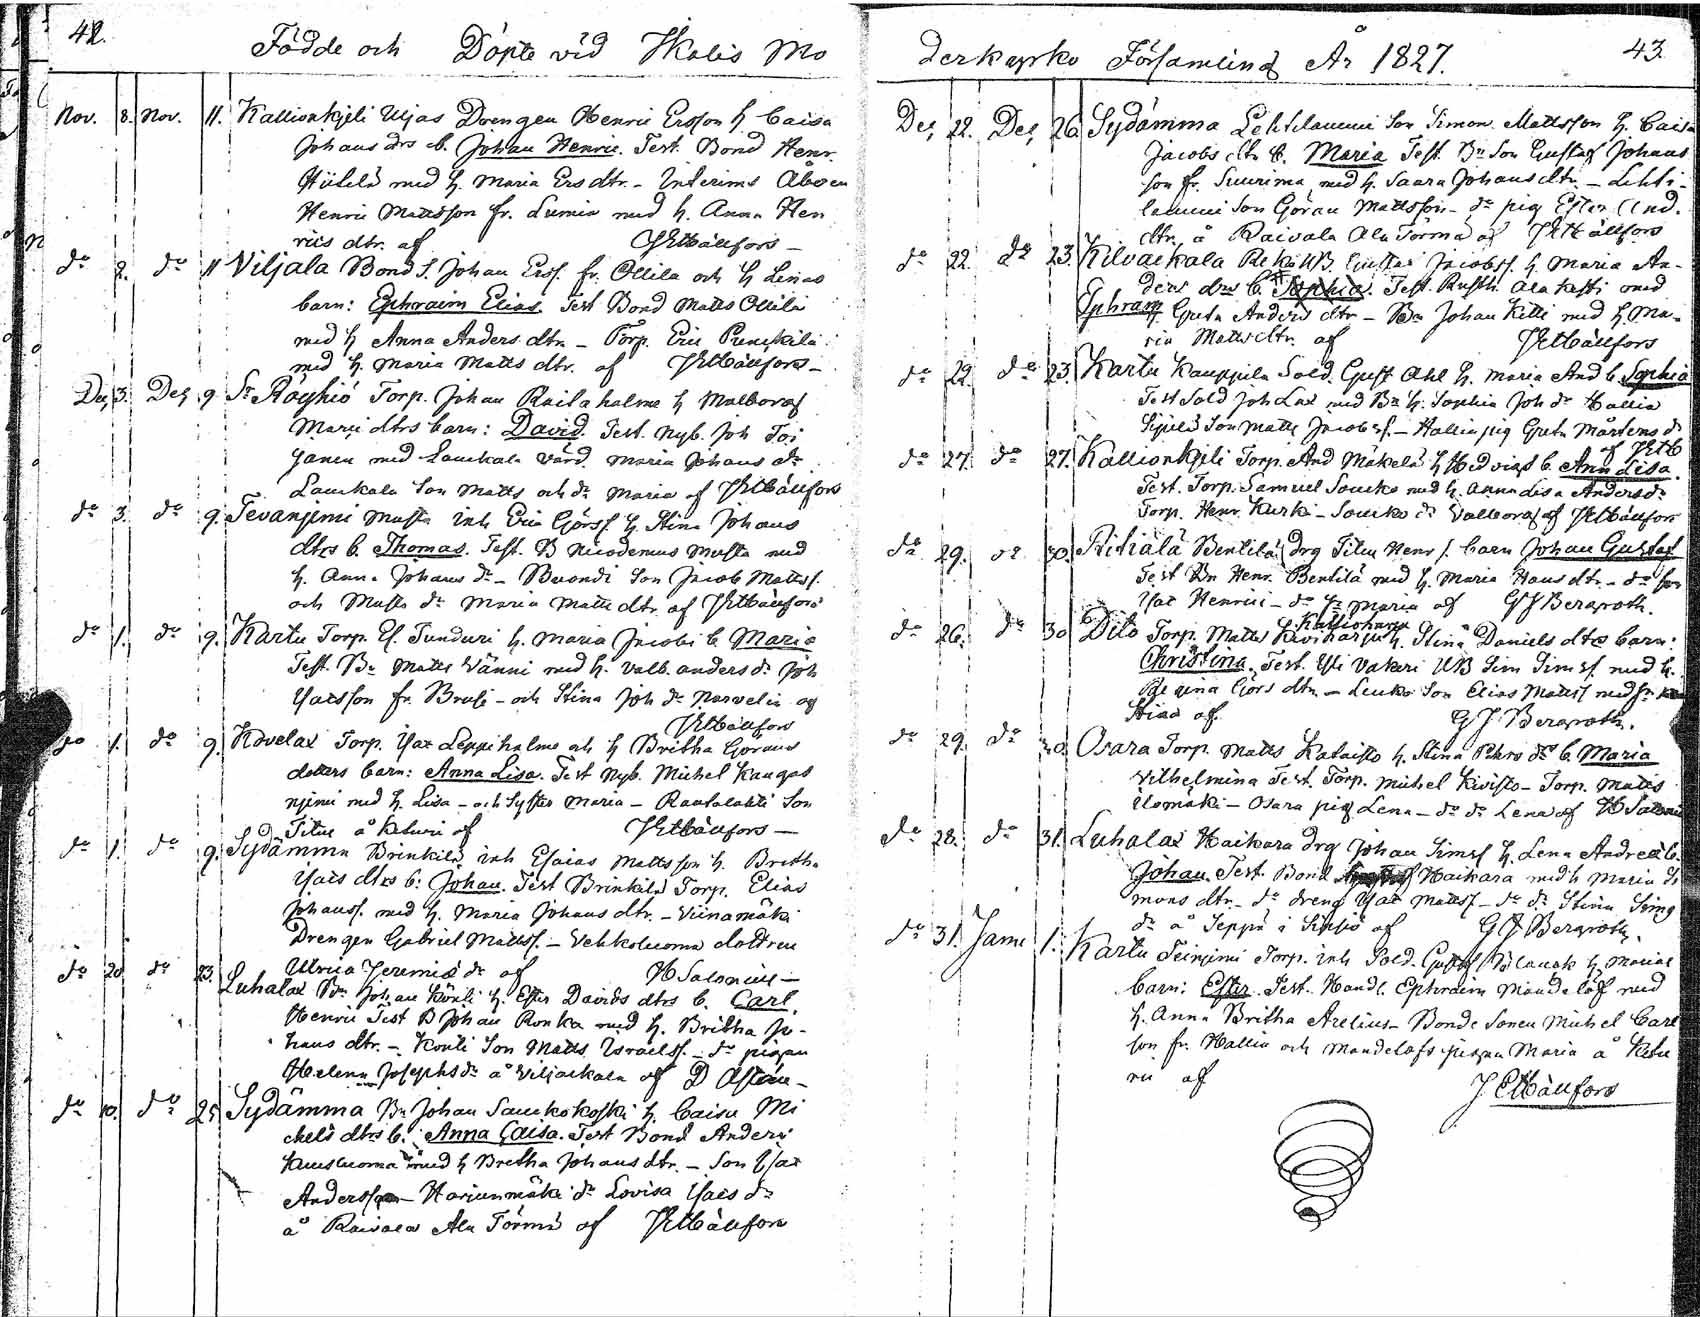 42.
Födde och Döpte vid Ikalis Mo
Nov. 8. Nov. 11. Kallionkjeli Uljas Drengen Henric Ersson h Caisa
Johans drs b. Johan Henric. Test. Bond Henr.
med h. Maria Ers dtr. - Interims Åboen
Henric Mattsson fr. Lumia med h. Anna Hen
rics dtr. af JEHällfors -
do 8. do 11 Viljala Bond S. Johan Erss. fr. Ollila och h Lenas
barn: Ephraim Elias. Test Bond Matts Ollila
med h Anna Anders dtr. - Torp. Eric
med h. Maria Matts dtr. af JEHällfors -
Dec. 3. Dec. 9 St. Röyhiö Torp. Johan Railaholma h Walborg
Marii dtrs barn: David. Test. Nyb. Joh Toi
janen med Laukala värd. Maria Johans dr
Laukala Son Matts och dr Maria af JEHällfors
do 3. do 9. Tevanjemi Musta inh Eric Görss. h Stina Johans
dtrs b. Thomas. Test. B Nicodemus Musta med
h. Anna Johans dr - Buondi Son Jacob Mattss.
och Musta dr Maria Matts dtr. af JEHällfors
do 1. do 9. Kartu Torp. Es. Tunduri h. Maria Jacobs b. Maria
Test. Bn Matts Vänni med h. Valb. Anders dr Joh
Isacsson fr. Brusi - och Stina Joh dr Norvelin af
JEHällfors
do 1. do 9. Kovelax Torp. Isac Leppiholme och h Britha Görans
dotters barn: Anna Lisa. Test Nyb. Michel Kangas
njemi med h. Lisa - och Syster Maria - Rautalahti Son
Titus å Keturi af JEHällfors -
do 1. do 9. Sydämma Brinkilä inh Esaias Mattsson h. Britha
Isacs dtrs b: Johan. Test Brinkilä Torp. Elias
Johanss. med h. Maria Johans dtr. - Viinamäki
Drengen Gabriel Mattss. - Vehkoluoma dottren
Ulrica Jeremiæ dr af HSalonius -
do 20 do 23. Luhalax Bn Johan Könli h. Ester Davids dtrs b. Carl
Henric Test B Johan Ronka med h. Britha Jo-
hans dtr. - Konli Son Matts Israelss. - do pigan
Helena Josephs dr å Viljackala af D
do 10. do 25 Sydämma Bn Johan Saukokoski h. Caisa Mi
chels dtrs b. Anna Caisa. Test Bond Anders
med h Bretha Johans dtr. - Son Isac
Andersson - Harjunmäki dr Lovisa Isacs dr
å Raivala Ala Törmä af JEHällfors
derkyrko Församling År 1827. 43.
Dec. 22. Dec. 26. Sydämma Lehtilammi Son Simon Mattsson h. Caisa
Jacobs dtr b. Maria Test. Bn Son Gustaf Johans
son fr. Suurima med h. Saara Johans dtr. - Lehti-
lammi Son Göran Mattsson - do pig Ester And.
dtr. å Raivala Ala Törmä af JEHällfors
do 22. do 23. Kilvackala Gustaf Jacobss. h Maria An-
ders drs b. Sophia. Test. Rusth. Alakesti med
Ephraim h. Greta Anders dtr - Bn Johan Kitti med h. Ma-
ria Matts dtr. af JEHällfors
do 22. do 23. Kartu Kauppila Sold. Gust Ahl h. Maria And b. Sophia
Test Sold Joh Lax med Bn h. Sophia Joh dr Hallia
Son Matts Jacobss. - Hallia pig Greta Mårtens dr
af JEHb
do 27. do 27. Kallionkjeli Torp. And Mäkelä h Hedvigs b. Ann Lisa.
Test. Torp. Samuel Soucko med h. Anna Lisa Anders dr
Torp. Henr. Kurki - Soucko dr Valborg af JEHällfors
do 29. do 30. Bentilä drg Titus Henr s. barn Johan Gustaf
Test Bn Henr. Bentilä med h. Maria Hans dtr. - do Son
Isac Henrici - do Maria af GJBergroth.
do 26. do 30 Dito Torp. Matts Kiviharju Kallioharju h. Stina Daniels dtrs barn:
Christina. Test. Vakeri UB Sim Simss. med h.
Regina Görs dtr. - Leuko Son Elias Mattss med
Stina af GJBergroth.
do 29. do 30. Osara Torp. Matts Kataisto h. Stina Pehrs dr b. Maria
Vilhelmina Test. Torp. Michel Kivisto - Torp. Matts
Ilomäki - Osara pig Lena - do dr Lena af HSalonius
do 28. do 31. Luhalax Haikara drg Johan Simss h. Lena Andreæ b.
Johan. Test. Bond Haikara med h Maria Si
mons dtr. - do dreng Isac Mattss. - do dr Stina Simo
dr å Seppä i Sipsiö af GJBergroth.
do 31. Janu 1. Kartu Teinjemi Torp. inh Sold. Gustaf Blanck h. Marias
barn: Ester. Test. Handl. Ephraim Mandelöf med
h. Anna Britha Arelius - Bonde Sonen Michel Carl
son fr. Hallia och Mandelöfs pigan Maria å Ketu
rii af JEHällfors